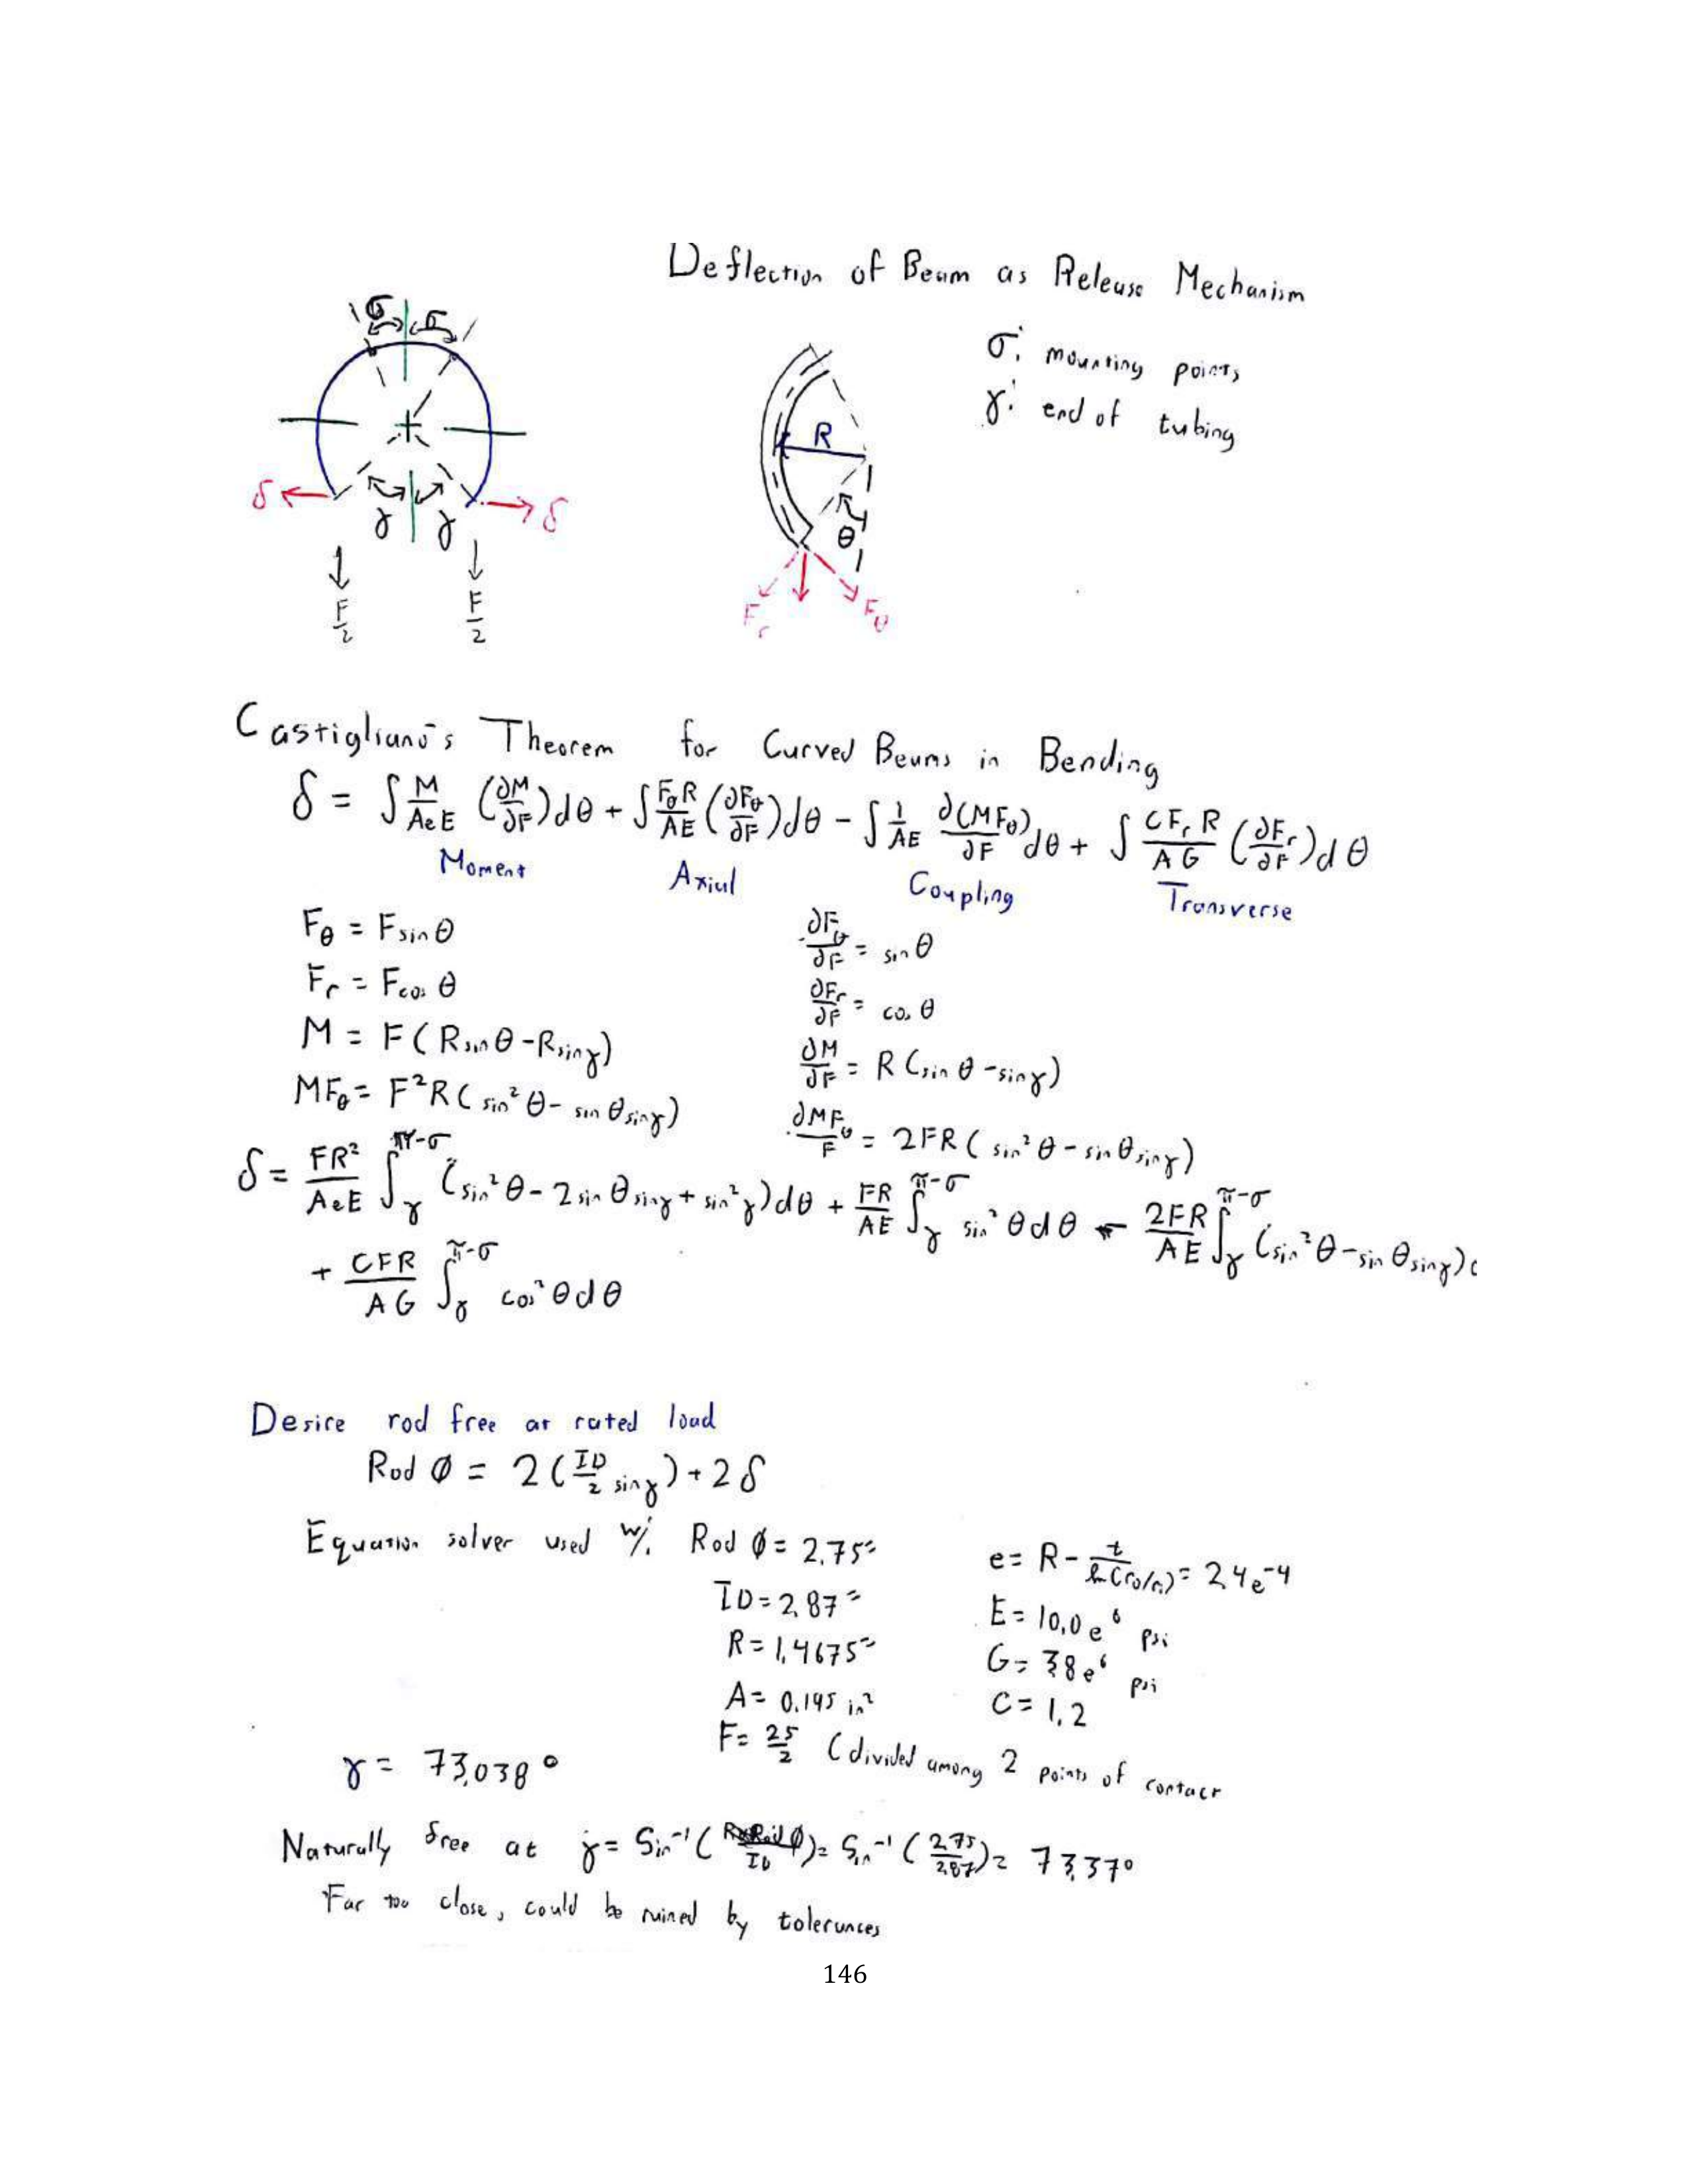 Deflection of Beam as Release Mechanism
σ σ
σ: mounting points
γ: end of tubing
R
δ δ
γ γ
θ
F/2 F/2
F_r F_θ
Castigliano's Theorem for Curved Beams in Bending
δ = ∫ M/AeE (∂M/∂F)dθ + ∫ F_θR/AE (∂F_θ/∂F)dθ - ∫ 1/AE ∂(MF_θ)/∂F dθ + ∫ CF_r R/AG (∂F_r/∂F)dθ
Moment Axial Coupling Transverse
F_θ = F sin θ ∂F_θ/∂F = sin θ
F_r = F cos θ ∂F_r/∂F = cos θ
M = F(R sin θ - R sin γ) ∂M/∂F = R(sin θ - sin γ)
MF_θ = F²R(sin²θ - sin θ sin γ) ∂MF_θ/F = 2FR(sin²θ - sin θ sin γ)
δ = FR²/AeE ∫_γ^(π-σ) (sin²θ - 2 sin θ sin γ + sin²γ)dθ + FR/AE ∫_γ^(π-σ) sin²θ dθ - 2FR/AE ∫_γ^(π-σ) (sin²θ - sin θ sin γ)
+ CFR/AG ∫_γ^(π-σ) cos²θ dθ
Desire rod free at rated load
Rod Ø = 2(ID/2 sin γ) + 2δ
Equation solver used w/: Rod Ø = 2.75" e = R - t/ln(r_o/r_i) = 2.4e^-4
ID = 2.87" E = 10.0e^6 psi
R = 1.4675" G = 3.8e^6 psi
A = 0.195 in² C = 1.2
F = 25/2 (divided among 2 points of contact
γ = 73.038°
Naturally free at γ = Sin^-1(Rod Ø/ID) = Sin^-1(2.75/2.87) = 73.37°
Far too close, could be ruined by tolerances
146